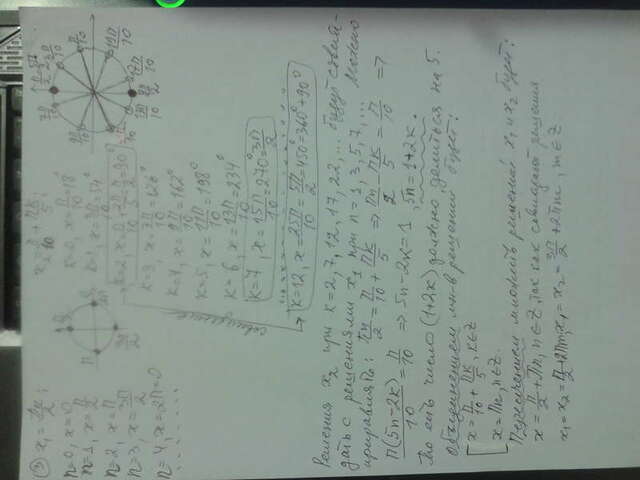 ③ x₁ = πn/2;
n=0, x=0
n=1, x=π/2
n=2, x=π
n=3, x=3π/2
n=4, x=2π=0
x₂ = π/10 + πk/5;
k=0, x=π/10=18°
k=1, x=3π/10=54°
k=2, x=π/10+2π/5=π/2=90°
k=3, x=7π/10=126°
k=4, x=9π/10=162°
k=5, x=11π/10=198°
k=6, x=13π/10=234°
k=7, x=15π/10=270°=3π/2
k=12, x=25π/10=5π/2=450°=360°+90°
совпадение
Решения x₂ при k=2, 7, 12, 17, 22, ... будут совпа-
дать с решениями x₁ при n=1, 3, 5, 7, ... Можно
приравнять: πn/2 = π/10 + πk/5 ⇒ πn/2 − πk/5 = π/10 ⇒
π(5n−2k)/10 = π/10 ⇒ 5n−2k=1, 5n=1+2k.
То есть число (1+2k) должно делиться на 5.
Объединением мн-в решений будет:
[ x = π/10 + πk/5, k∈Z
x = πn, n∈Z.
Пересечением множеств решений x₁ и x₂ будет:
x = π/2 + πn, n∈Z, так как совпадают решения
x₁=x₂=π/2+2πm; x₁=x₂=3π/2+2πm, m∈Z